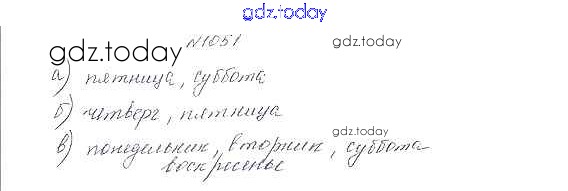 gdz.today
№1051
gdz.today
gdz.today
а) пятница, суббота
б) четверг, пятница
gdz.today
в) понедельник, вторник, суббота
воскресенье